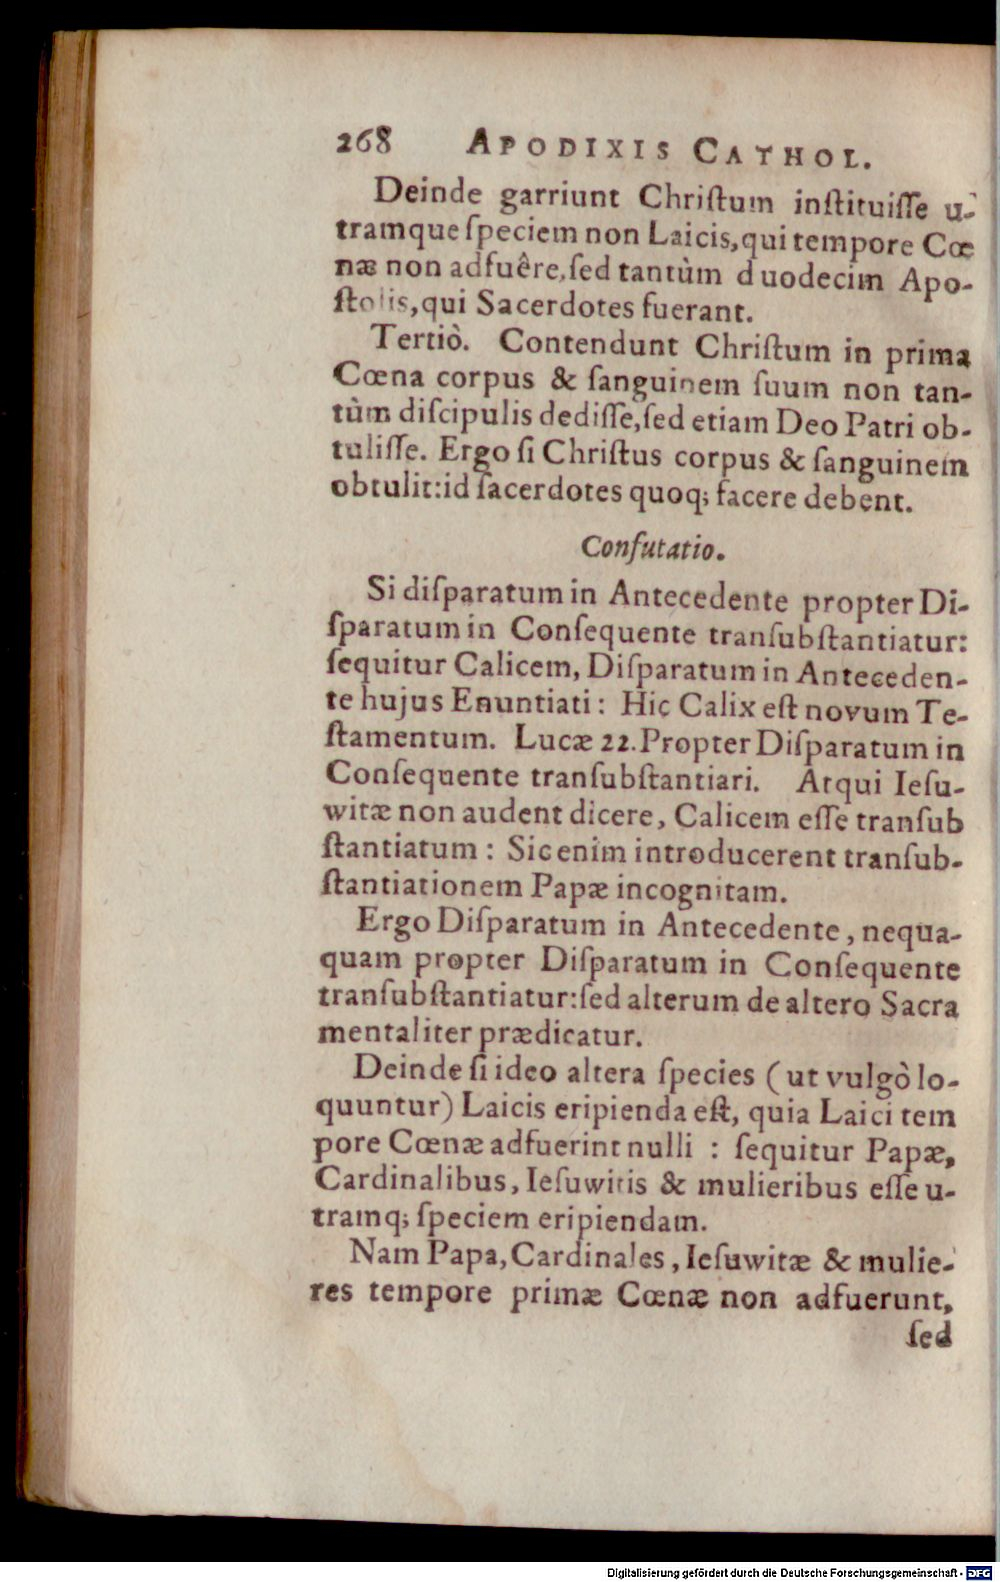 268 APODIXIS CATHOL.
Deinde garriunt Chriſtum inſtituiſſe u-
tramque ſpeciem non Laicis, qui tempore Cœ
næ non adfuêre, ſed tantùm duodecim Apo-
ſtolis, qui Sacerdotes fuerant.
Tertiò. Contendunt Chriſtum in prima
Cœna corpus & ſanguinem ſuum non tan-
tùm diſcipulis dediſſe, ſed etiam Deo Patri ob-
tuliſſe. Ergo ſi Chriſtus corpus & ſanguinem
obtulit: id ſacerdotes quoq; facere debent.
Confutatio.
Si diſparatum in Antecedente propter Di-
ſparatum in Conſequente tranſubſtantiatur:
ſequitur Calicem, Diſparatum in Anteceden-
te hujus Enuntiati: Hic Calix eſt novum Te-
ſtamentum. Lucæ 22. Propter Diſparatum in
Conſequente tranſubſtantiari. Atqui Ieſu-
witæ non audent dicere, Calicem eſſe tranſub
ſtantiatum: Sic enim introducerent tranſub-
ſtantiationem Papæ incognitam.
Ergo Diſparatum in Antecedente, nequa-
quam propter Diſparatum in Conſequente
tranſubſtantiatur: ſed alterum de altero Sacra
mentaliter prædicatur.
Deinde ſi ideo altera ſpecies (ut vulgò lo-
quuntur) Laicis eripienda eſt, quia Laici tem
pore Cœnæ adfuerint nulli : ſequitur Papæ,
Cardinalibus, Ieſuwitis & mulieribus eſſe u-
tramq; ſpeciem eripiendam.
Nam Papa, Cardinales, Ieſuwitæ & mulie-
res tempore primæ Cœnæ non adfuerunt,
ſed
Digitalisierung gefördert durch die Deutsche Forschungsgemeinschaft - DFG